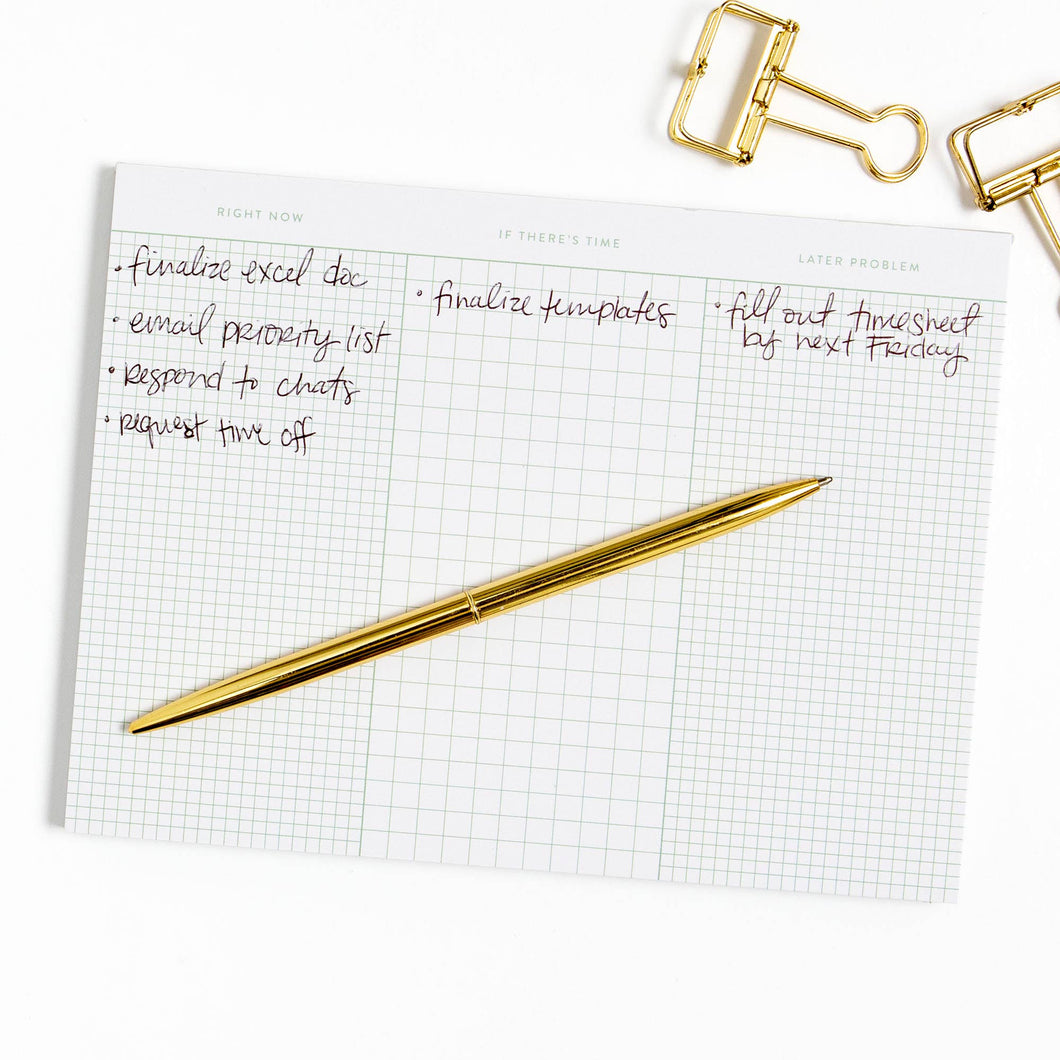 RIGHT NOW
• finalize excel doc
• email priority list
• respond to chats
• request time off
IF THERE'S TIME
• finalize templates
LATER PROBLEM
• fill out timesheet
by next Friday